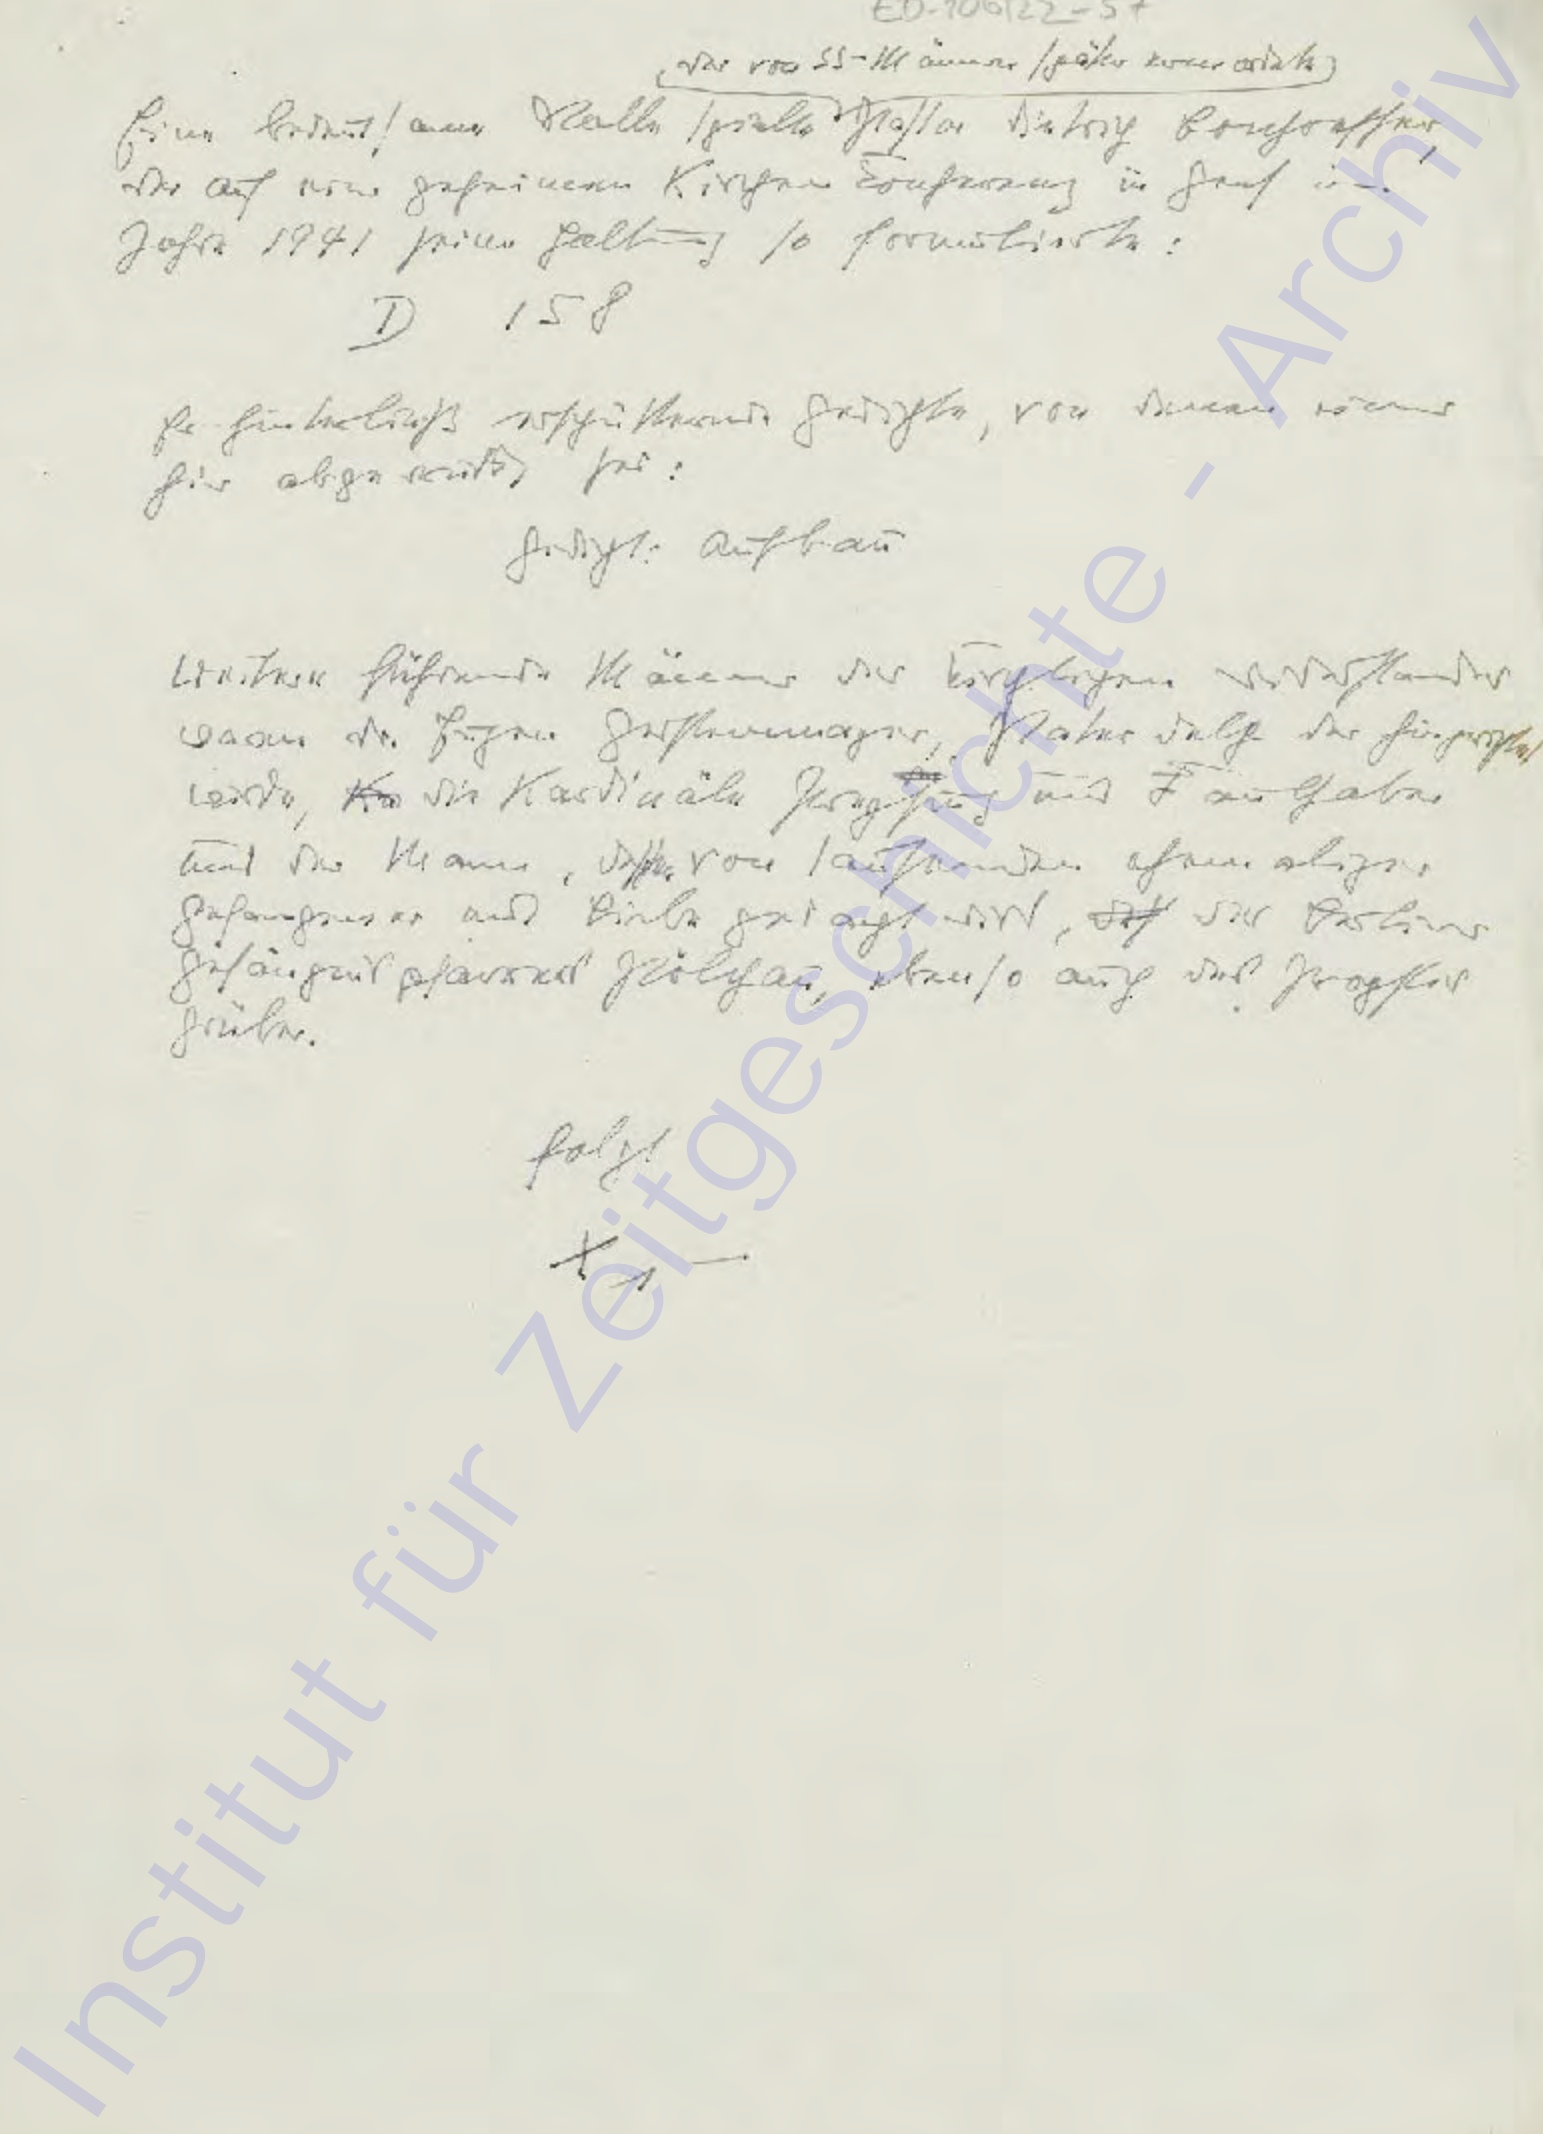 ED-106/22-57
, der von SS-Männern später ermordete,
Eine bedeutsame Rolle spielte Pastor Dietrich Bonhoeffer,
der auf einer geheimen Kirchenkonferenz in Genf im
Jahre 1941 seine Haltung so formulierte:
D 158
Er hinterließ erschütternde Gedichte, von denen eines
hier abgedruckt sei:
Gedicht: Aufbau
Weitere führende Männer des kirchlichen Widerstandes
waren Dr. Eugen Gerstenmayer, Pater Delp der hingerichtet
wurde, die Kardinäle Preysing und Faulhaber
und der Mann, der von tausenden ehemaliger
Gefangener mit Liebe gesagt wird, der Berliner
Gefängnispfarrer Pölchau, ebenso auch der Propst
Grüber.
folgt
Institut für Zeitgeschichte - Archiv